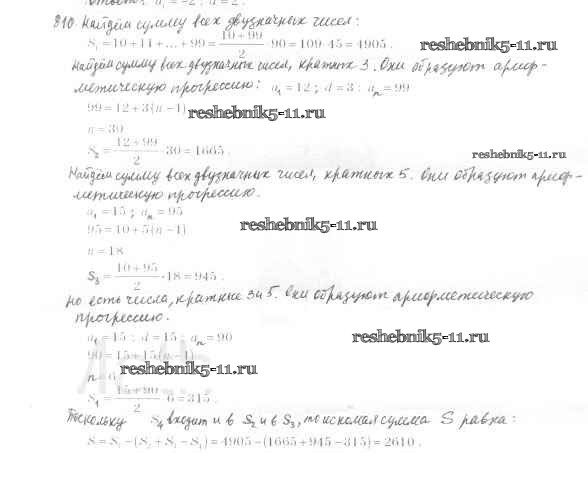 810. Найдём сумму всех двузначных чисел:
S₁=10+11+...+99=(10+99)/2·90=109·45=4905.
reshebnik5-11.ru
Найдём сумму всех двузначных чисел, кратных 3. Они образуют ариф-
метическую прогрессию: a₁=12; d=3; aₙ=99
99=12+3(n-1)
reshebnik5-11.ru
n=30
S₂=(12+99)/2·30=1665.
reshebnik5-11.ru
Найдём сумму всех двузначных чисел, кратных 5. Они образуют ариф-
метическую прогрессию.
a₁=15; aₙ=95
95=10+5(n-1)
reshebnik5-11.ru
n=18
S₃=(10+95)/2·18=945.
Но есть числа, кратные 3 и 5. Они образуют арифметическую
прогрессию.
a₁=15; d=15; aₙ=90
reshebnik5-11.ru
90=15+15(n-1)
reshebnik5-11.ru
n=6
S₄=(15+90)/2·6=315.
Поскольку S₄ входит и в S₂ и в S₃, то искомая сумма S равна:
S=S₁-(S₂+S₃-S₄)=4905-(1665+945-315)=2610.